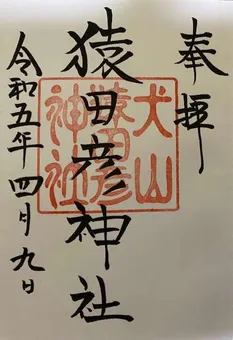 奉拝
猿田彦神社
令和五年四月九日
犬山
猿田彦
神社